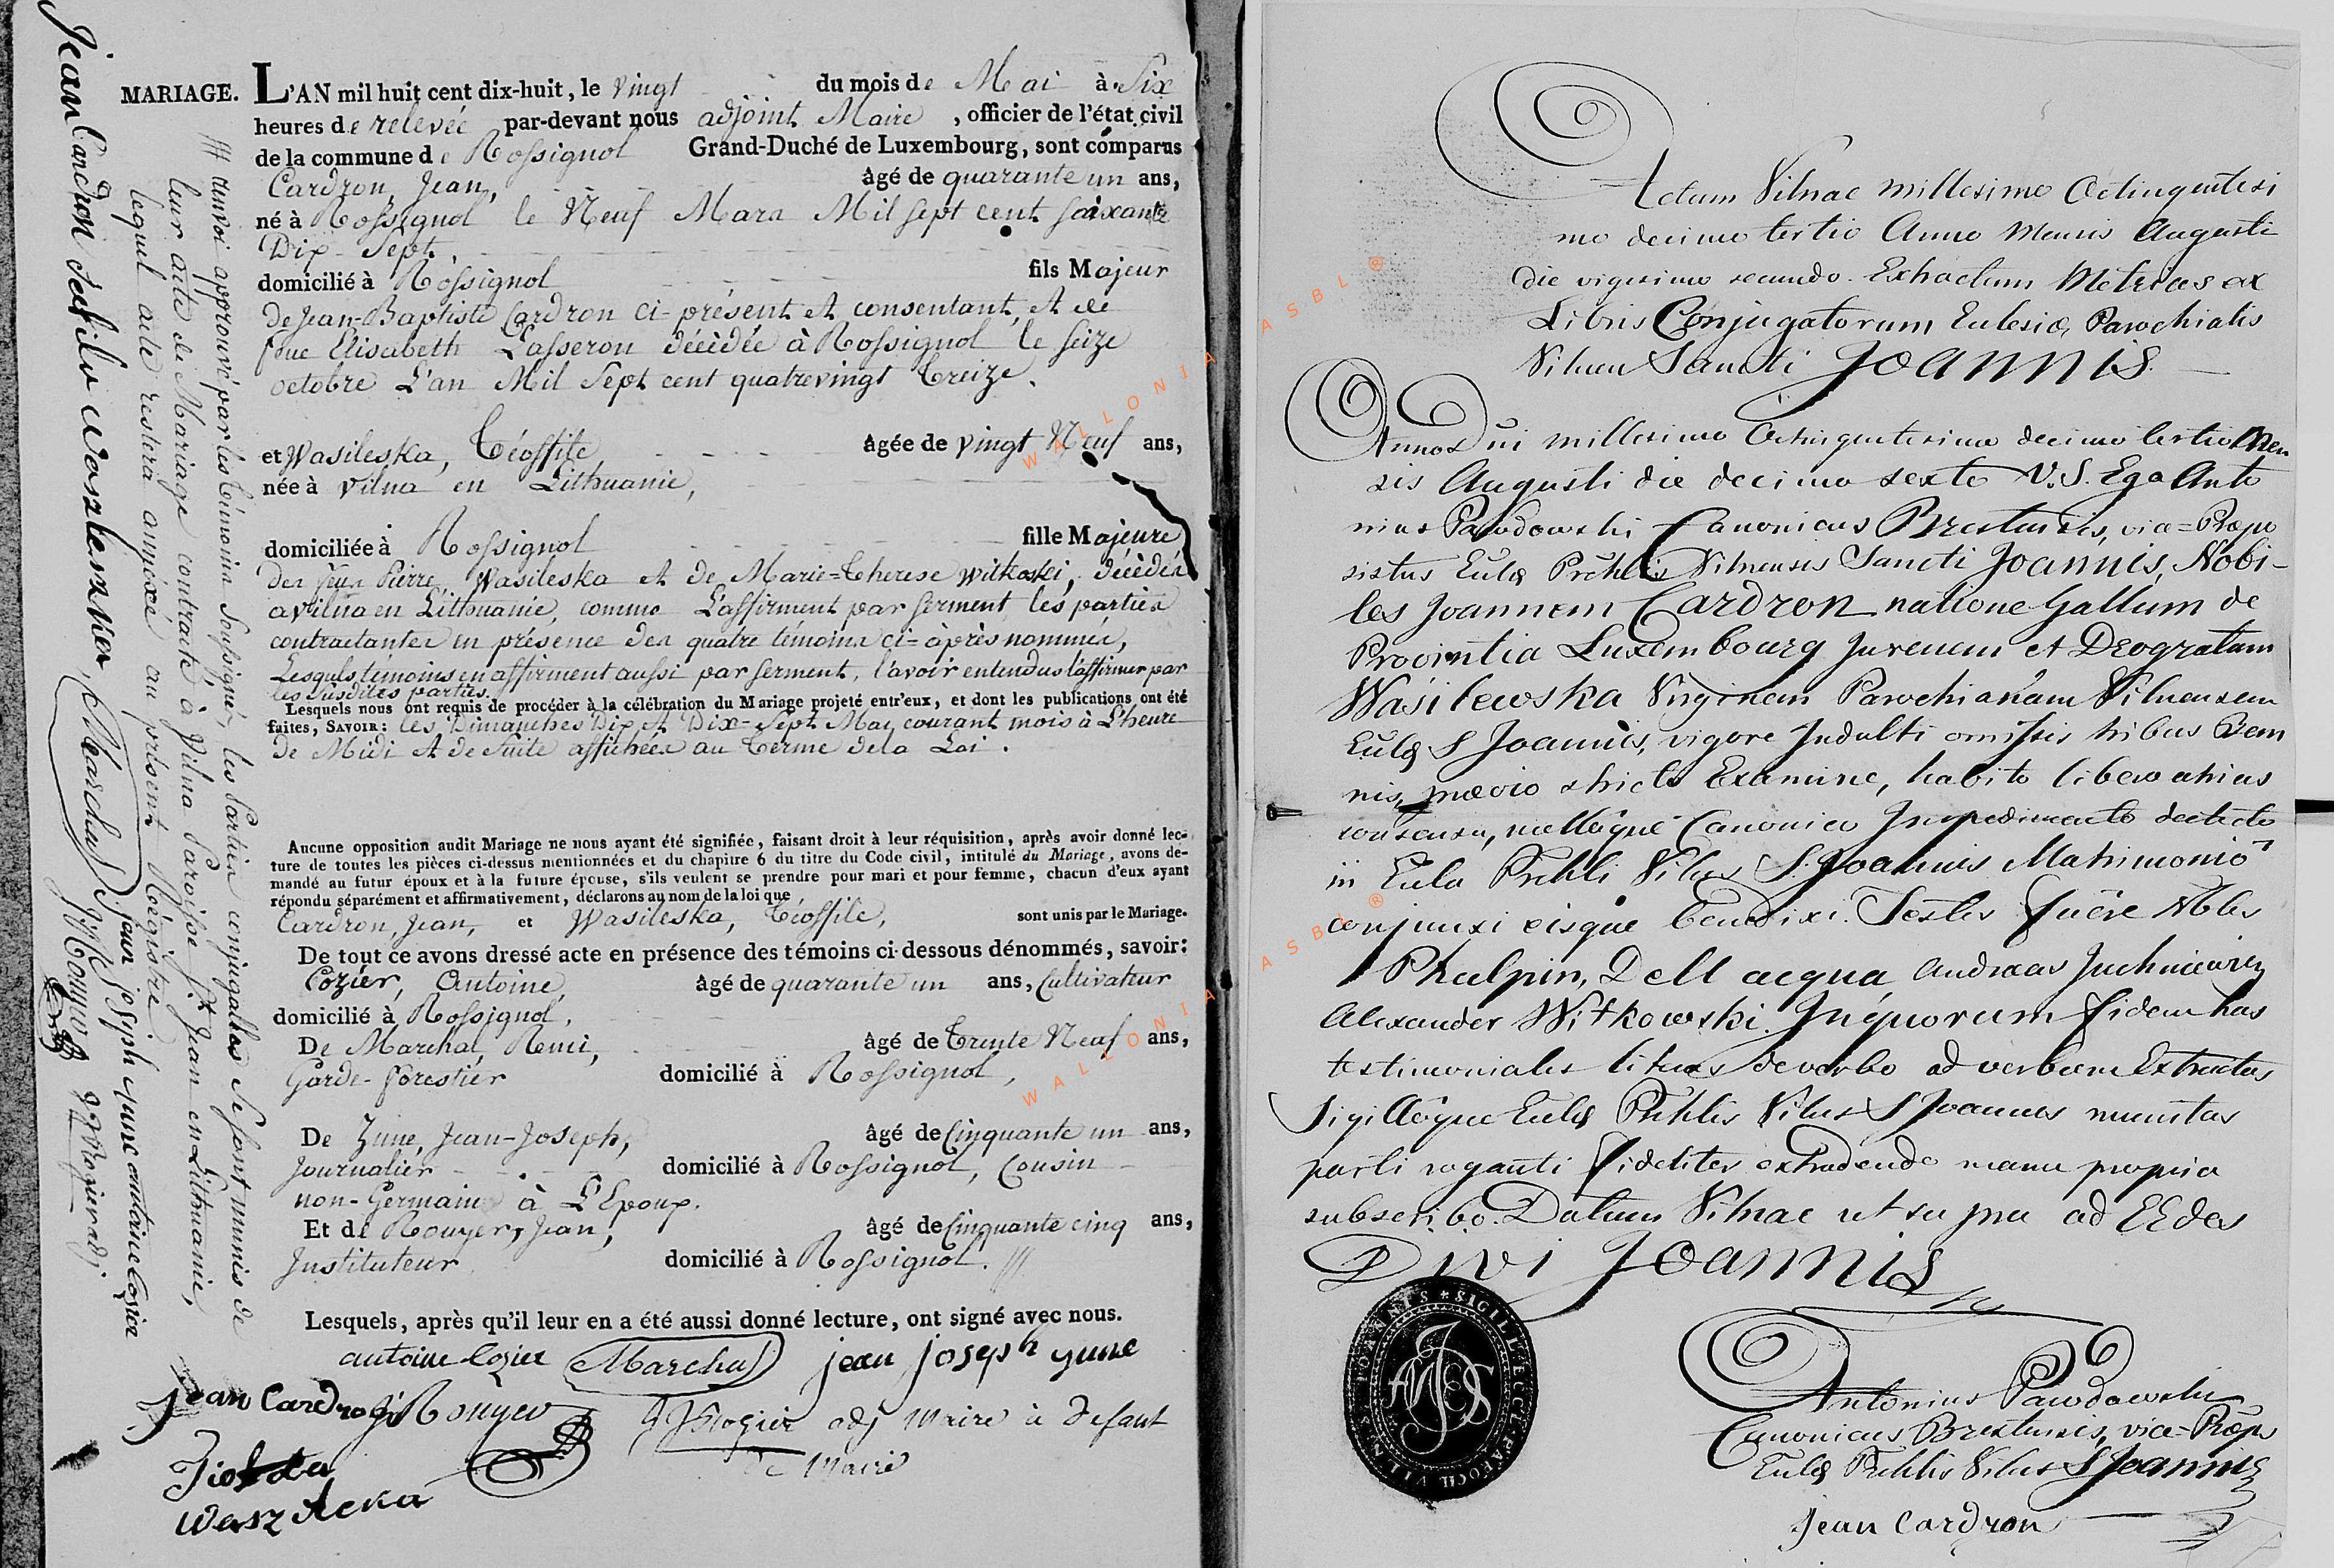 MARIAGE. L'AN mil huit cent dix-huit, le Vingt du mois de Mai à Six
heures de relevée par-devant nous adjoint Maire, officier de l'état civil
de la commune de Rossignol Grand-Duché de Luxembourg, sont comparus
Cardron, Jean, âgé de quarante un ans,
né à Rossignol le Neuf Mars Mil sept cent soixante
Dix-Sept.
domicilié à Rossignol fils Majeur
de Jean-Baptiste Cardron ci-présent et consentant, et de
feue Elisabeth Lasseron décédée à Rossignol le seize
octobre L'an Mil Sept cent quatrevingt Treize.
et Wasileska, Téoffile, âgée de vingt Neuf ans,
née à Vilna en Lithuanie,
domiciliée à Rossignol fille Majeure
des feux Pierre Wasileska et de Marie-Therese Witkoski, décédés
a Vilna en Lithuanie, comme L'affirment par serment les parties
contractantes en présence des quatre témoins ci-après nommés,
Lesquels témoins en affirment aussi par serment, l'avoir entendus l'affirmer par
les susdites parties.
Lesquels nous ont requis de procéder à la célébration du Mariage projeté entr'eux, et dont les publications ont été
faites, SAVOIR: les Dimanches Dix et Dix-Sept Mai courant mois à L'heure
de Midi et de suite affichées au Terme de la Loi.
Aucune opposition audit Mariage ne nous ayant été signifiée, faisant droit à leur réquisition, après avoir donné lec-
ture de toutes les pièces ci-dessus mentionnées et du chapitre 6 du titre du Code civil, intitulé du Mariage, avons de-
mandé au futur époux et à la future épouse, s'ils veulent se prendre pour mari et pour femme, chacun d'eux ayant
répondu séparément et affirmativement, déclarons au nom de la loi que
Cardron, Jean, et Wasileska, Téoffile, sont unis par le Mariage.
De tout ce avons dressé acte en présence des témoins ci-dessous dénommés, savoir:
Cozier, Antoine, âgé de quarante un ans, Cultivateur
domicilié à Rossignol,
De Marchal, Remi, âgé de Trente Neuf ans,
Garde-forestier domicilié à Rossignol,
De Zune, Jean-Joseph, âgé de Cinquante un ans,
Journalier domicilié à Rossignol, Cousin
non-Germain à L'Epoux.
Et de Rouyer, Jean, âgé de Cinquante cinq ans,
Instituteur domicilié à Rossignol. ///
Lesquels, après qu'il leur en a été aussi donné lecture, ont signé avec nous.
antoine Cozier Marchal jean joseph zune
jean Cardron J Rouyer adj Maire à Defaut
de Maire
/// Renvoi approuvé par les témoins soussignés, les Parties conjugalles se sont munis de
leur acte de Mariage contracté à Vilna Paroisse St Jean en Lithuanie,
lequel acte restera annexé au présent Régistre
jean Cardron Marchal jean joseph zune antoine Cozier
J Rouyer
Actum Vilnae millesimo Octingentesi
mo decimo tertio Anno Mensis Augusti
die vigesimo secundo. Extractum Metrices ex
Libris Conjugatorum Eclesiæ Parochialis
Vilnen Sancti JOANNIS.
Anno Dni millesimo Octingentesimo decimo tertio Men
sis Augusti die decimo sexto V. S. Ego Anto
nius Pawdowski Canonicus Brestensis, vice=Præpo
situs Eulæ Prchlis Vilnensis Sancti Joannis, Nobi-
les Joannem Cardron natione Gallum de
Provintia Luxembourg Juvenem et Deogratam
Wasilewska Virginem Parochianam Vilnensem
Eulæ S Joannis, vigore Indulti omissis tribus Bem
nis, prævio stricto Examine, habito libero
consensu, nulloque Canonico Impedimento detecto
in Eula Prchli Vilns S. Joannis Matrimonio
conjunxi eisque benedixi. Testes fuêre Nbles
Phulpin, Dell acqua Andreas Juchniewicz
Alexander Witkowski. Inquorum fidem has
testimoniales literas de verbo ad verbum Extractas
Sigilloque Eulæ Prchlis Vilns S Joannes munitas
parti roganti fideliter extradendo manu propria
subscribo. Datum Vilnae ut supra ad EEdes
DIVI JOANNIS
Antonius Pawdowski
Canonicus Brestensis, vice=Præps
Eulæ Prchlis Vilns S Joannis
jean Cardron
ASBL ®
WALLONIA
ASBL ®
WALLONIA